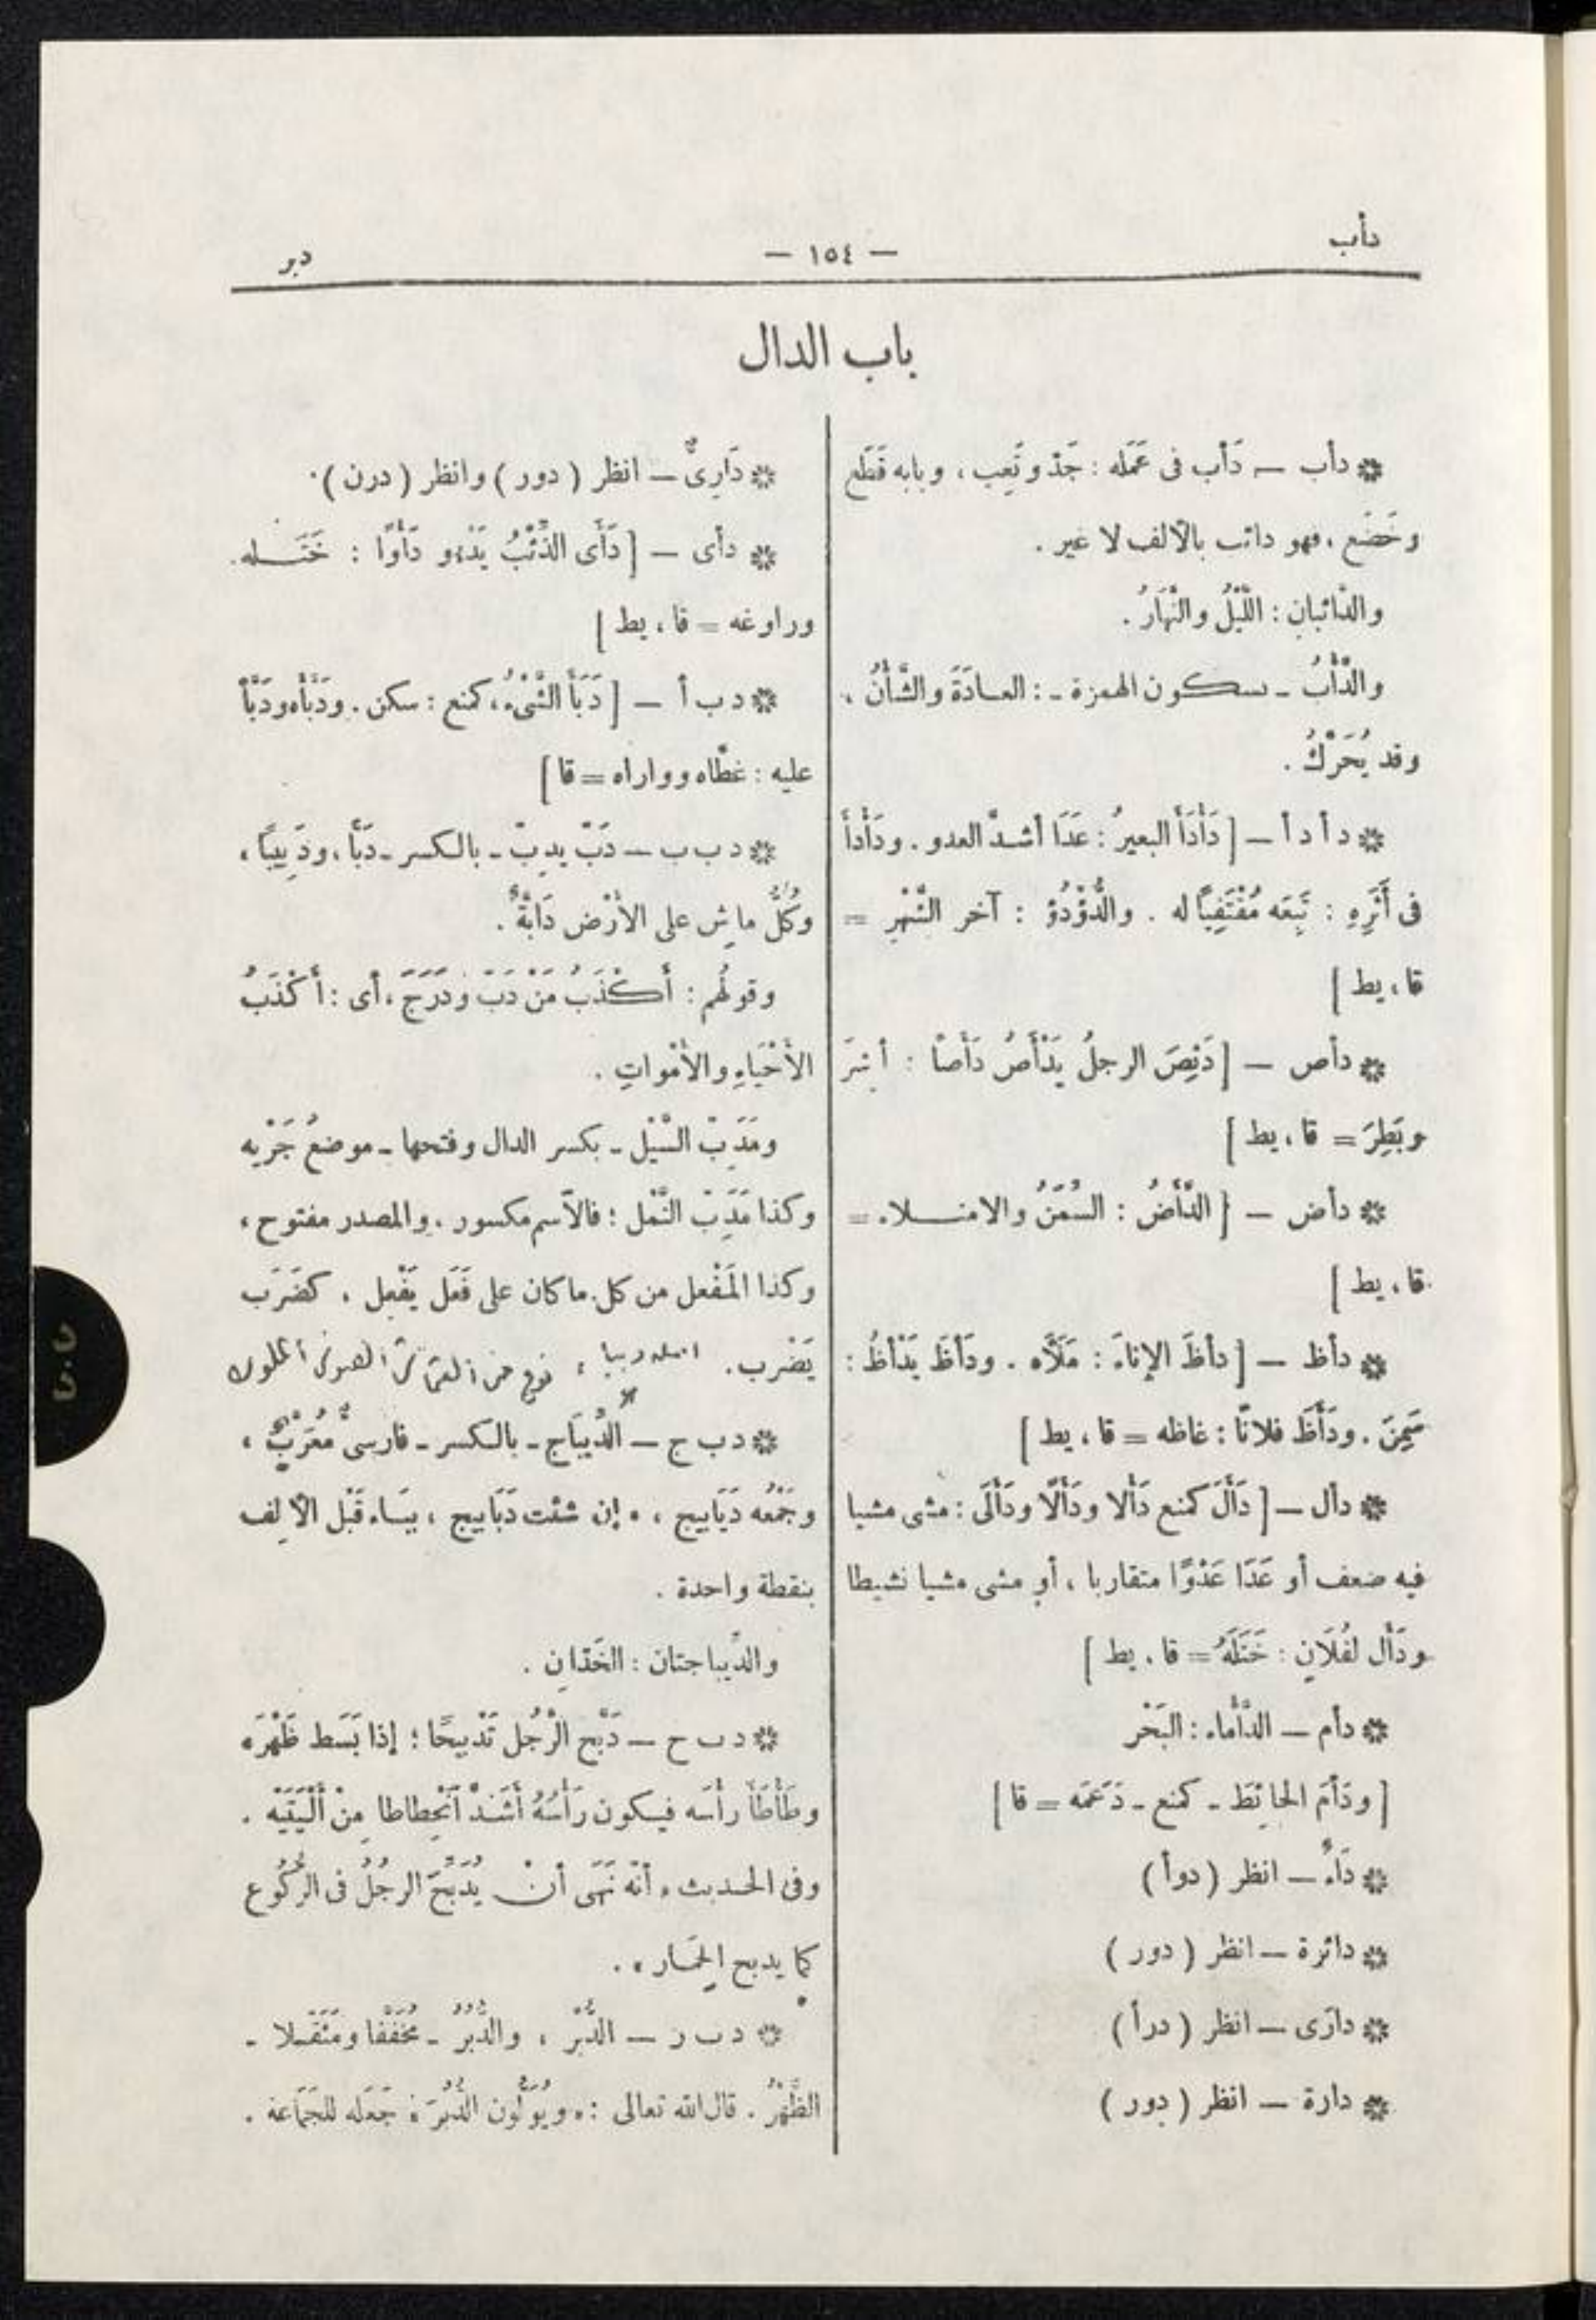 دأب
— ١٥٤ —
دبر
باب الدال
❊ دأب — دَأب فى عَمَله : جَدّ وتَعِب ، وبابه قَطَع
وخَضَع ، فهو دائب بالألف لا غير .
والدَّائبانِ : اللَّيْلُ والنَّهَارُ .
والدَّأْبُ - بسكون الهمزة - : العادَةُ والشَّأْنُ ،
وقد يُحَرَّكُ .
❊ د أ د أ — [ دَأْدَأَ البعيرُ : عَدَا أشدَّ العدو . ودَأْدَأَ
فى أَثَرِهِ : تَبِعَه مُقْتَفِيًا له . والدُّؤْدُؤ : آخر الشَّهْرِ =
قا ، يط ]
❊ دأص — [ دَئِصَ الرجلُ يَدْأَصُ دَأَصًا : أَشِرَ
وبَطِرَ = قا ، يط ]
❊ دأض — [ الدَّأَضُ : السِّمَنُ والامتلاء =
قا ، يط ]
❊ دأظ — [ دأظَ الإناءَ : مَلَأَه . ودَأَظَ يَدْأَظُ :
سَمِنَ . ودَأَظَ فلانًا : غاظه = قا ، يط ]
❊ دأل — [ دَأَلَ كمنع دَأْلا ودَأَلًا ودَأَلَى : مشى مشيا
فيه ضعف أو عَدَا عَدْوًا متقاربا ، أو مشى مشيا نشيطا
ودَأَل لفُلَانٍ : خَتَلَهُ = قا ، يط ]
❊ دأم — الدَّأْماء : البَحْر
[ ودَأَمَ الحائِطَ - كمنع - دَعَمَه = قا ]
❊ دَاءٌ — انظر ( دوأ )
❊ دائرة — انظر ( دور )
❊ دارَى — انظر ( درأ )
❊ دارة — انظر ( دور )
❊ دَارِىٌّ — انظر ( دور ) وانظر ( درن ) .
❊ دأى — [ دَأَى الذِّئْبُ يَدْءو دَأْوًا : خَتَله
وراوغه = قا ، يط ]
❊ د ب أ — [ دَبَأَ الشَّىْءُ ، كمنع : سكن . ودَبَّأَه ودَبَّأَ
عليه : غطّاه وواراه = قا ]
❊ د ب ب — دَبّ يدِبّ - بالكسر - دَبًّا ، ودَبِيبًا ،
وكُلُّ ماشٍ على الأَرْض دَابّةٌ .
وقولُهم : أَكْذَبُ مَنْ دَبّ ودَرَجَ ، أى : أَكْذَبُ
الأَحْيَاءِ والأَمْواتِ .
ومَدَِبّ السَّيْل - بكسر الدال وفتحها - موضعُ جَرْيه
وكذا مَدَِبّ النَّمْل ؛ فالاسم مكسور . والمصدر مفتوح ،
وكذا المَفْعل من كل ما كان على فَعَل يَفْعِل ، كضَرَب
يَضْرب . نوع من القماش الملوك
❊ د ب ج — الدِّيبَاج - بالكسر - فارسىٌّ مُعَرَّبٌ ،
وجَمْعُه دَيَابِيج ، وإن شئت دَبَابِيج ، بيَاء قَبْل الألِف
بنقطة واحدة .
والدِّيباجتان : الخَدّانِ .
❊ د ب ح — دَبَّح الرَّجُل تَدْبِيحًا ؛ إذا بَسَط ظَهْرَه
وطَأْطَأَ رأسَه فيكون رَأْسُهُ أَشَدَّ ٱنْحِطاطا مِنْ أَلْيَتَيْه .
وفى الحديث « أنّه نَهَى أنْ يُدَبِّحَ الرجُلُ فى الرُّكُوع
كما يدبح الحِمَار » .
❊ د ب ر — الدُّبْر ، والدُّبُرُ - مُخَفَّفا ومُثَقَّلا -
الظَّهْرُ . قال الله تعالى : « ويُوَلُّون الدُّبُرَ » جَعَله للجَمَاعة .